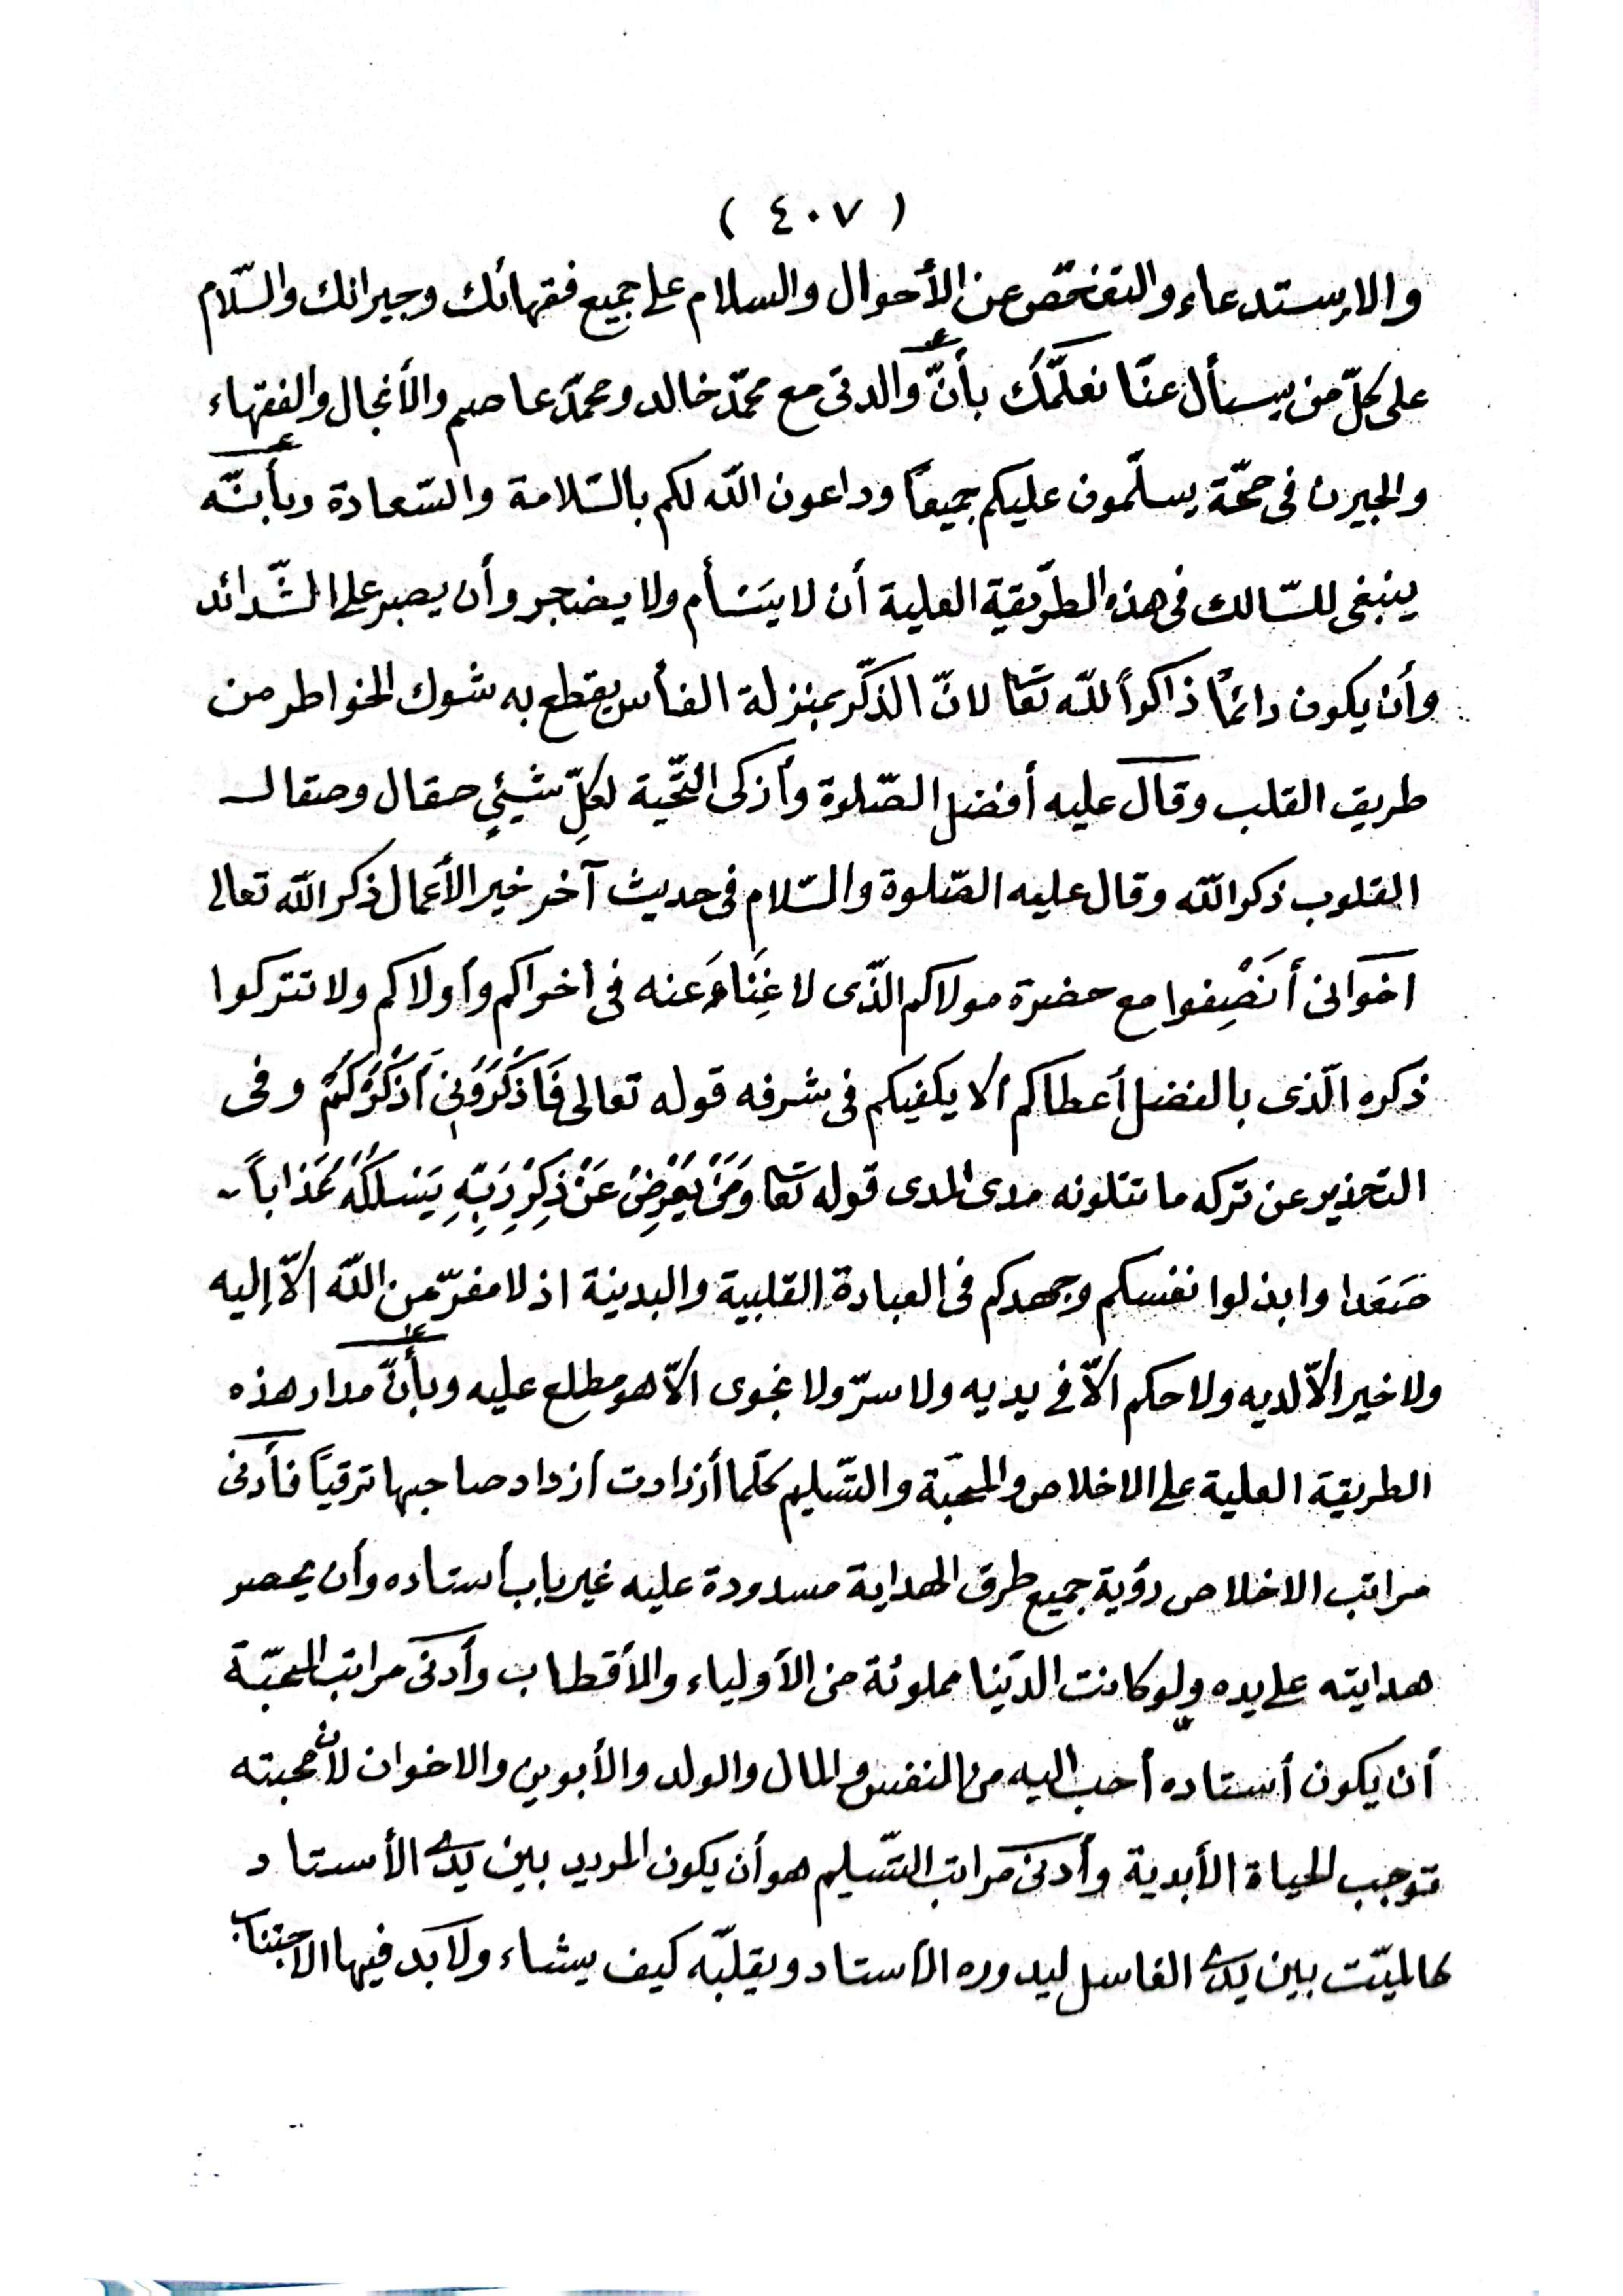 ( ٤٠٧ )
والاستدعاء والتفحّص عن الأحوال والسلام على جميع فقهائك وجيرانك والسّلام
على كلّ من يسأل عنّا نعلّمك بأنّ والدتى مع محمّد خالد ومحمّد عاصم والأنجال والفقهاء
والجيرن فى صحّة يسلّمون عليكم جميعاً وداعون الله لكم بالسّلامة والسّعادة وبأنّه
ينبغى للسّالك فى هذه الطّريقية العلية أن لا يَسْأم ولا يضجر وأن يصبر على الشّدائد
وأن يكون دائماً ذاكراً للّه تعا لانّ الذّكر بمنزلة الفأس يقطع به شوك الخواطر من
طريق القلب وقال عليه أفضل الصّلوة وأزكى التّحية لكلّ شيئي صقال وصقال
القلوب ذكر الله وقال عليه الصّلوة والسّلام فى حديث آخر خير الأعمال ذكر الله تعالى
اخوانى أَنْصِفوا مع حضرة مولاكم الذّى لا غِنَاءَ عنه فى أخراكم وأولاكم ولا تتركوا
ذكره الّذى بالفضل أعطاكم ألا يكفيكم فى شرفه قوله تعالى فَاذْكُرُونِى أَذْكُرْكُمْ وفى
التحذير عن تركه ما تتلونه مدى المدى قوله تعا وَمَنْ يُعْرِضْ عَنْ ذِكْرِ رَبِّهِ يَسْلُكْهُ عَذَاباً
صَعَدا وابذلوا نفسكم وجهدكم فى العبادة القلبية والبدنية اذ لا مفرّ عن الله الاّ إليه
ولا خير الاّ لديه ولا حكم الاّ فى يديه ولا سرّ ولا نجوى الاّ هو مطلع عليه وبأنّ مدار هذه
الطريقة العلية على الاخلاص والمحبّة والتّسليم كلّما أزدادت أزداد صاحبها ترقياً فأدنى
مراتب الاخلاص رؤية جميع طرق الهداية مسدودة عليه غير باب أستاده وأن يحصر
هدايته على يده ولو كانت الدّنيا مملوئة من الأولياء والأقطاب وأدنى مراتب المحبّة
أن يكون أستاده أحب اليه من النفس والمال والولد والأبوين والاخوان لأنّ محبته
توجب الحياة الأبدية وأدنى مراتب التّسليم هو أن يكون المريد بين يدى الأستاد
كالميّت بين يدى الغاسل ليدوره الأستاد ويقلبّه كيف يشاء ولا بد فيها الاجتناب